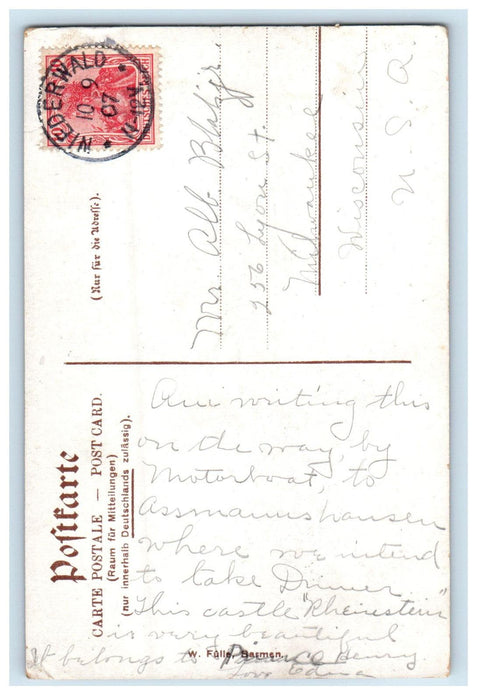 NIEDERWALD
10 9
07
Postkarte
CARTE POSTALE — POST CARD.
(Raum für Mitteilungen)
(nur innerhalb Deutschlands zulässig).
(Nur für die Adresse).
Mr Alb
756 Lyon St
Milwaukee
Wisconsin
U. S. A.
Am writing this
on the way by
Motorboat, to
Assmannshausen
where we intend
to take Dinner
This castle "Rheinstein"
is very beautiful
It belongs to Prince Henry
Love Edna
W. Fülle, Barmen.